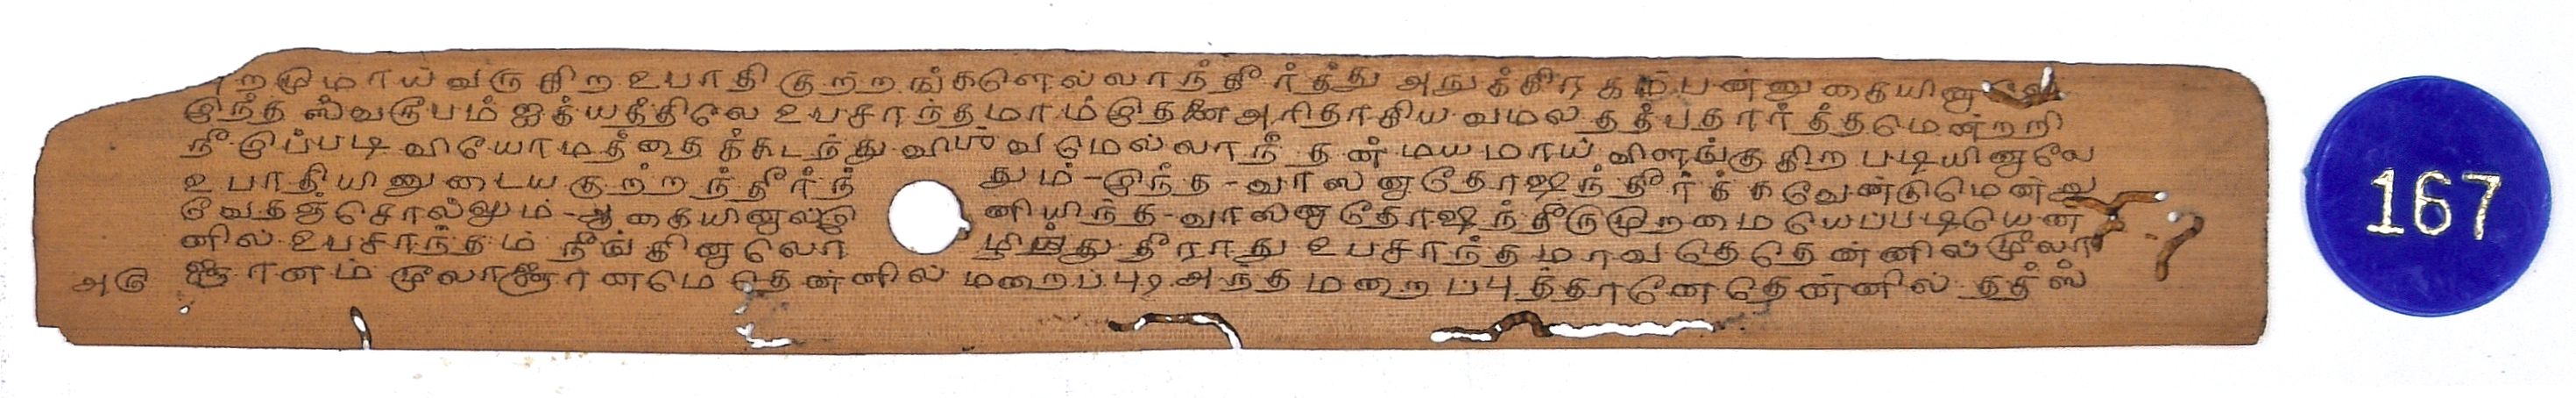 றமுமாய் வருகிற உபாதி குற்றங்களெல்லாந்தீர்த்து அநுக்கிரகம்பண்ணுகையினாலே
இந்த ஸ்வரூபம் ஐக்யத்திலே உபசாந்தமாம் இதனை அரிதாகிய வமல தத்பதார்த்தமென்றறி
நீ இப்படி வியோமத்தைக்கடந்து விஶ்வமெல்லாநீ தன்மயமாய் விளங்குகிற படியினாலே
உபாதியினுடைய குற்றந்தீர்ந் தும்-இந்த-வாஸனாதோஷந்தீர்க்கவேண்டுமென்று
வேதஞ்சொல்லும்-ஆகையினால் னியிந்த-வாஸனாதோஷந்தீருமுறமை யெப்படியென்
னில் உபசாந்தம் நீங்கினாலொ ழிந்து தீராது உபசாந்தமாவதெதென்னில் மூலா
ஞானம் மூலாஞானமெதென்னில் மறைப்பு அந்த மறைப்புத்தானேதென்னில் தத்ஸ்
அரு
167